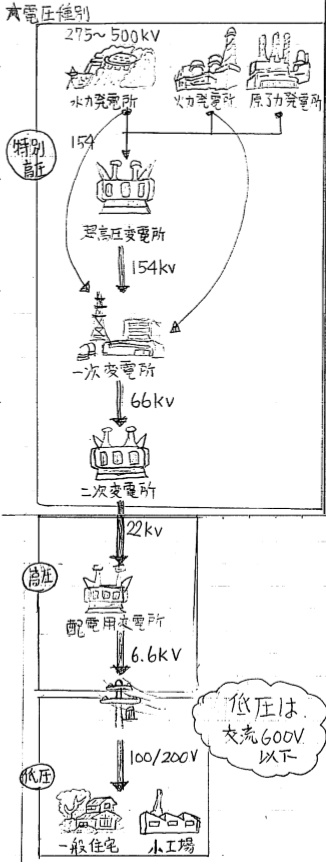 ★電圧種別
275～500kV
水力発電所
火力発電所
原子力発電所
特別
高圧
154
超高圧変電所
154kV
一次変電所
66kV
二次変電所
22kV
高圧
配電用変電所
6.6kV
低圧は
交流600V
以下
100/200V
低圧
一般住宅
小工場